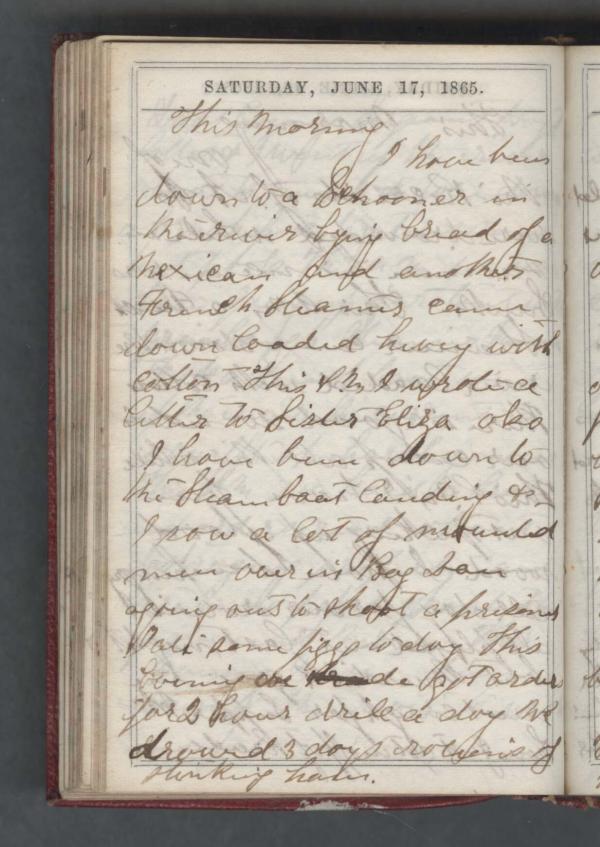 SATURDAY, JUNE 17, 1865.
This Morning
I have been
down to a Schooner in
the river bying bread of a
Mexican and another
French Steamer came
down loaded hevey with
cotton This P.M I wrote a
letter to Sister Eliza also
I have been down to
the Steam boat landing &
I saw a lot of mounted
men over in Bag Dan
agoing out to shoot a prisoner
I ate some figgs to day This
Evening we de got order
for 2 hour drill a day We
drawed 3 days rations of
stinking ham.